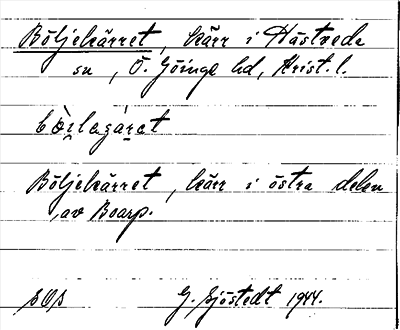 Böljekärret, kärr i Hästveda
sn, Ö. Göinge hd, Krist. l.
Böljekärret, kärr i östra delen
av Boarp.
G. Sjöstedt 1944.